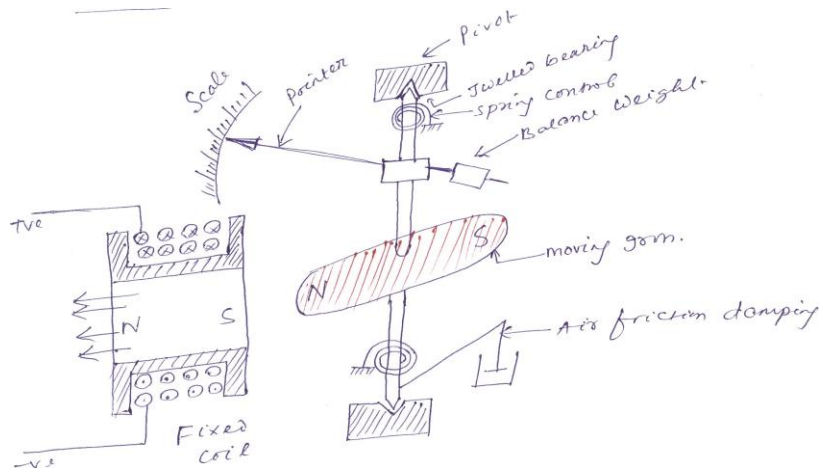 Pivot
Jwelled bearing
Spring control
Balance weight.
Scale
Pointer
+ve
N
S
N
S
moving iron.
Air friction damping
-ve
Fixed
coil